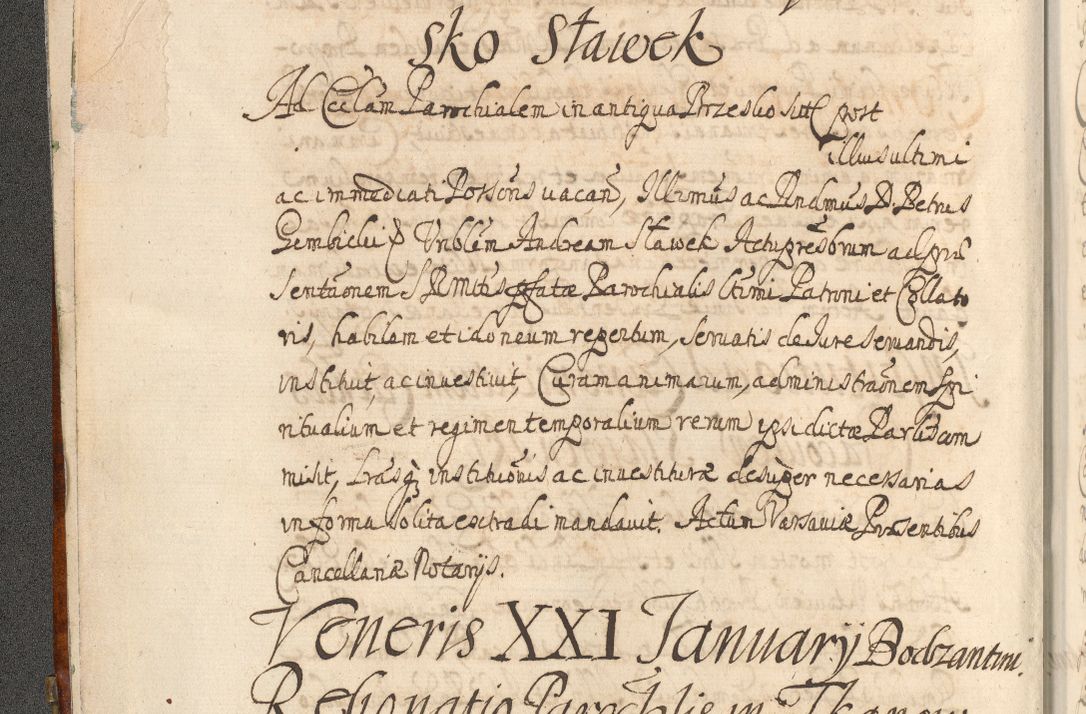 sko Sławek
Ad Ecclam Parochialem in antiqua Brzesko sitt post
illius ultimi
ac immediati Possons vacan, Illrmus ac Rndmus D. Petrus
Gembicki Vnblem Andream Sławek Actu presbrum ad prae
sentaonem SRMttis pfatae Parochialis Ltimi Patroni et Collato
ris, habilem et idoneum repertum, servatis de Iure servandis,
instituit, ac investivit, Curam animarum, administraonem spi
ritualium et regimen temporalium rerum ipsi dictae Parlis com
misit, Lras q institutionis ac investiturae desuper necessarias
in forma solita extradi mandavit. Actum Varsaviae Praesentibus
Cancellariae Notarijs.
Veneris XXI Januarij Bodzantini
Resignatio Parochlis in